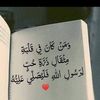 وَمَنْ كَانَ فِي قَلْبِهِ
مِثْقَالُ ذَرَّةٍ حُبٍّ
لِرَسُولِ اللهِ فَلْيُصَلِّ عَلَيْهِ